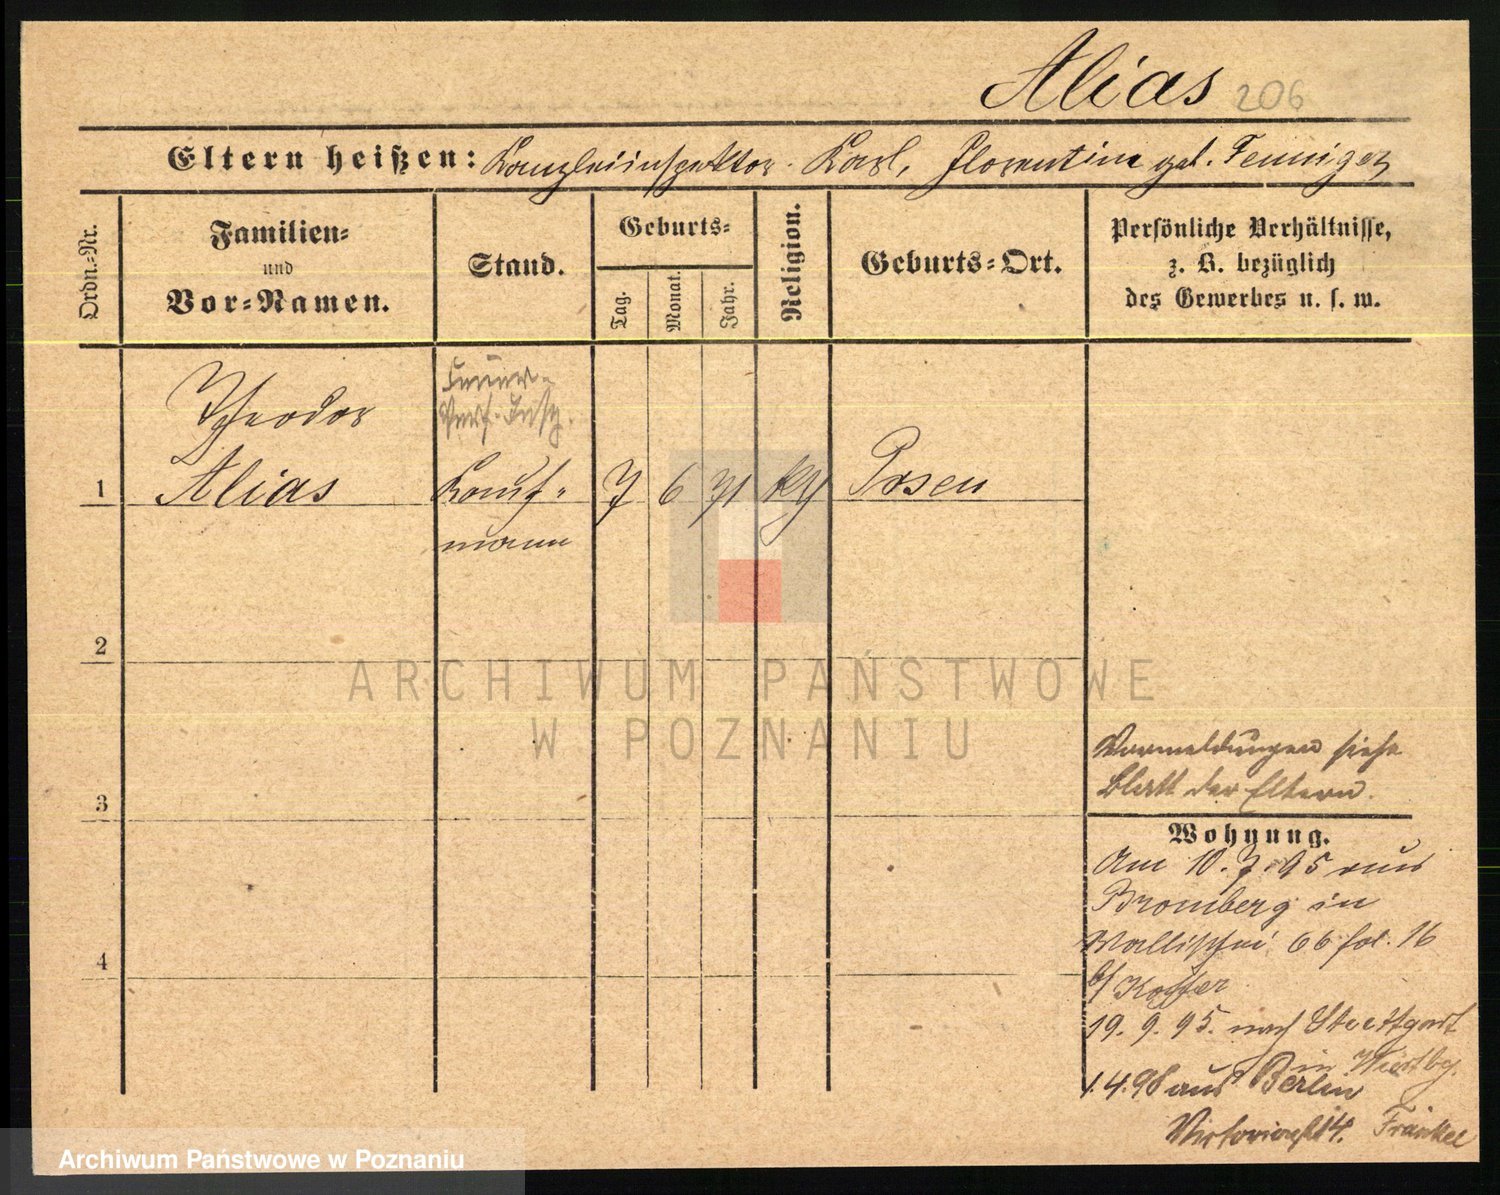 Alias 206
Eltern heißen: Kanzleiinspektor Karl, Florentine geb. Fenniger
Ordn.-Nr.
Familien-
und
Vor-Namen.
Stand.
Geburts-
Tag.
Monat.
Jahr.
Religion.
Geburts-Ort.
Persönliche Verhältnisse,
z. B. bezüglich
des Gewerbes u. s. w.
Theodor
Feuer-
Vers. Insp.
1 Alias Kauf- 7 6 71 Posen
mann
2
ARCHIWUM PAŃSTWOWE
W POZNANIU
Vormeldungen siehe
3 Blatt der Eltern.
Wohnung.
Am 10.7.95 aus
Bromberg in
Wallischei 66 fol. 16
4
b/
19.9.95. nach Stuttgart
in Württbg.
1.4.98 aus Berlin
Victoriastr 14. Fränkel
Archiwum Państwowe w Poznaniu